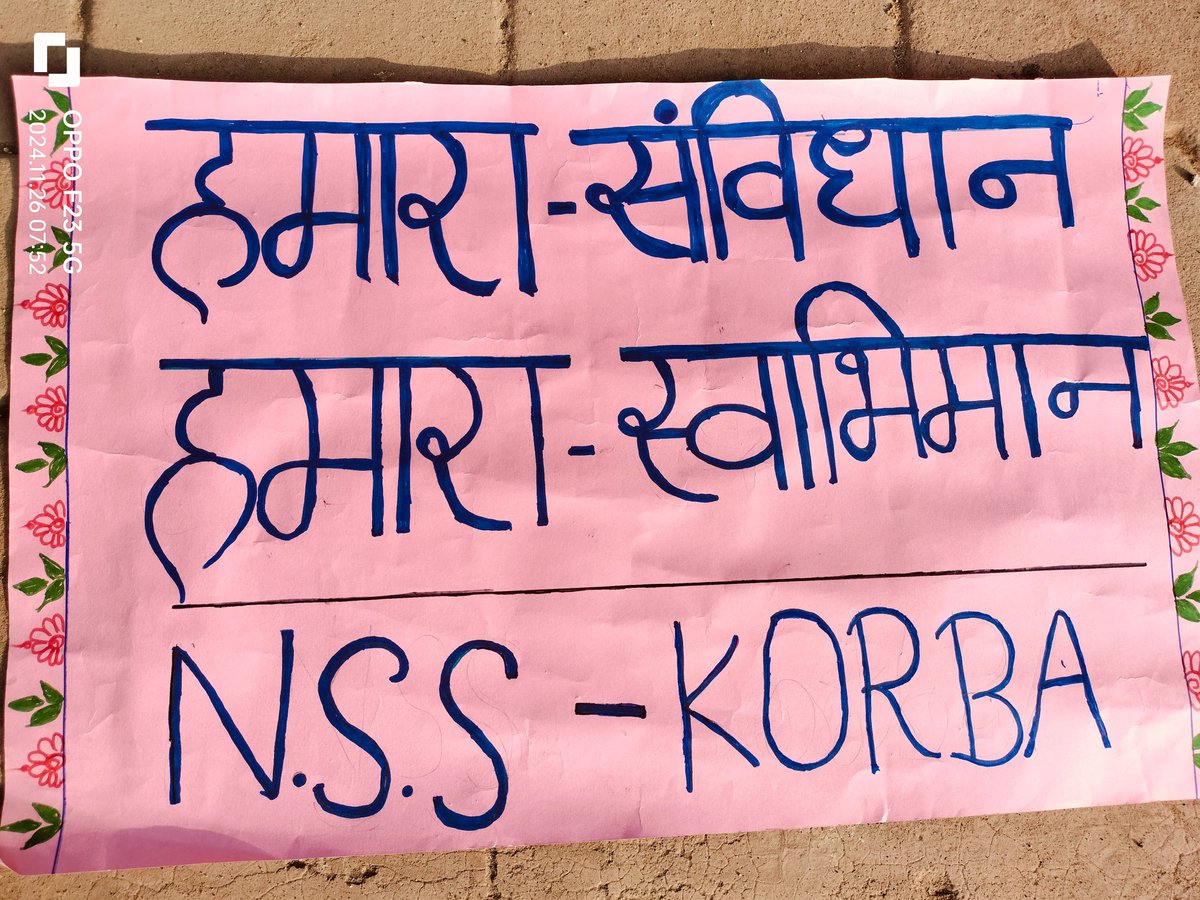 हमारा - संविधान
हमारा - स्वाभिमान
N.S.S - KORBA
OPPO F23 5G
2024.11.26 07:52